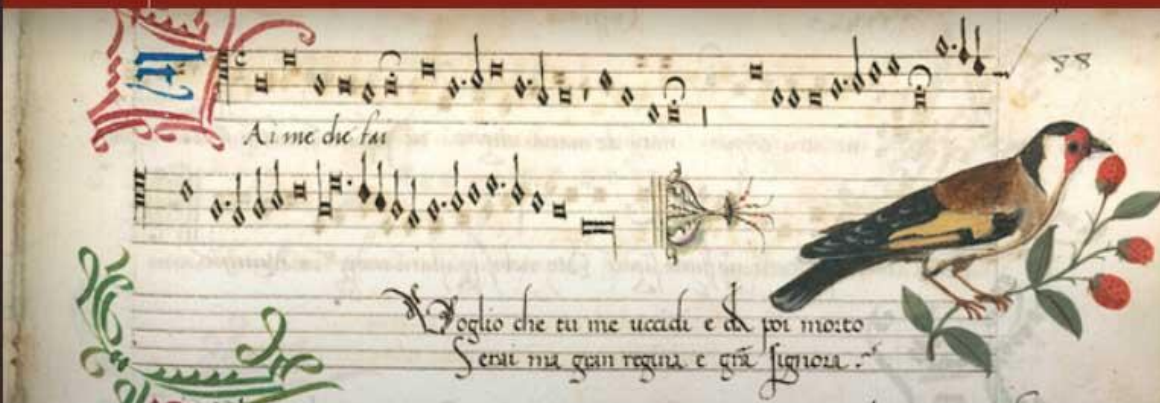 88
Ai me che fai
Voglio che tu me uccidi e da poi morto
Serai ma gran regina e grã signora.